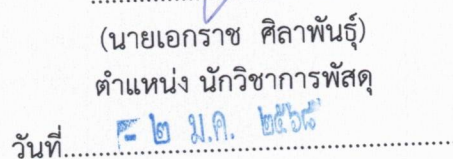 (นายเอกราช ศิลาพันธุ์)
ตำแหน่ง นักวิชาการพัสดุ
วันที่ - ๒ ม.ค. ๒๕๖๘